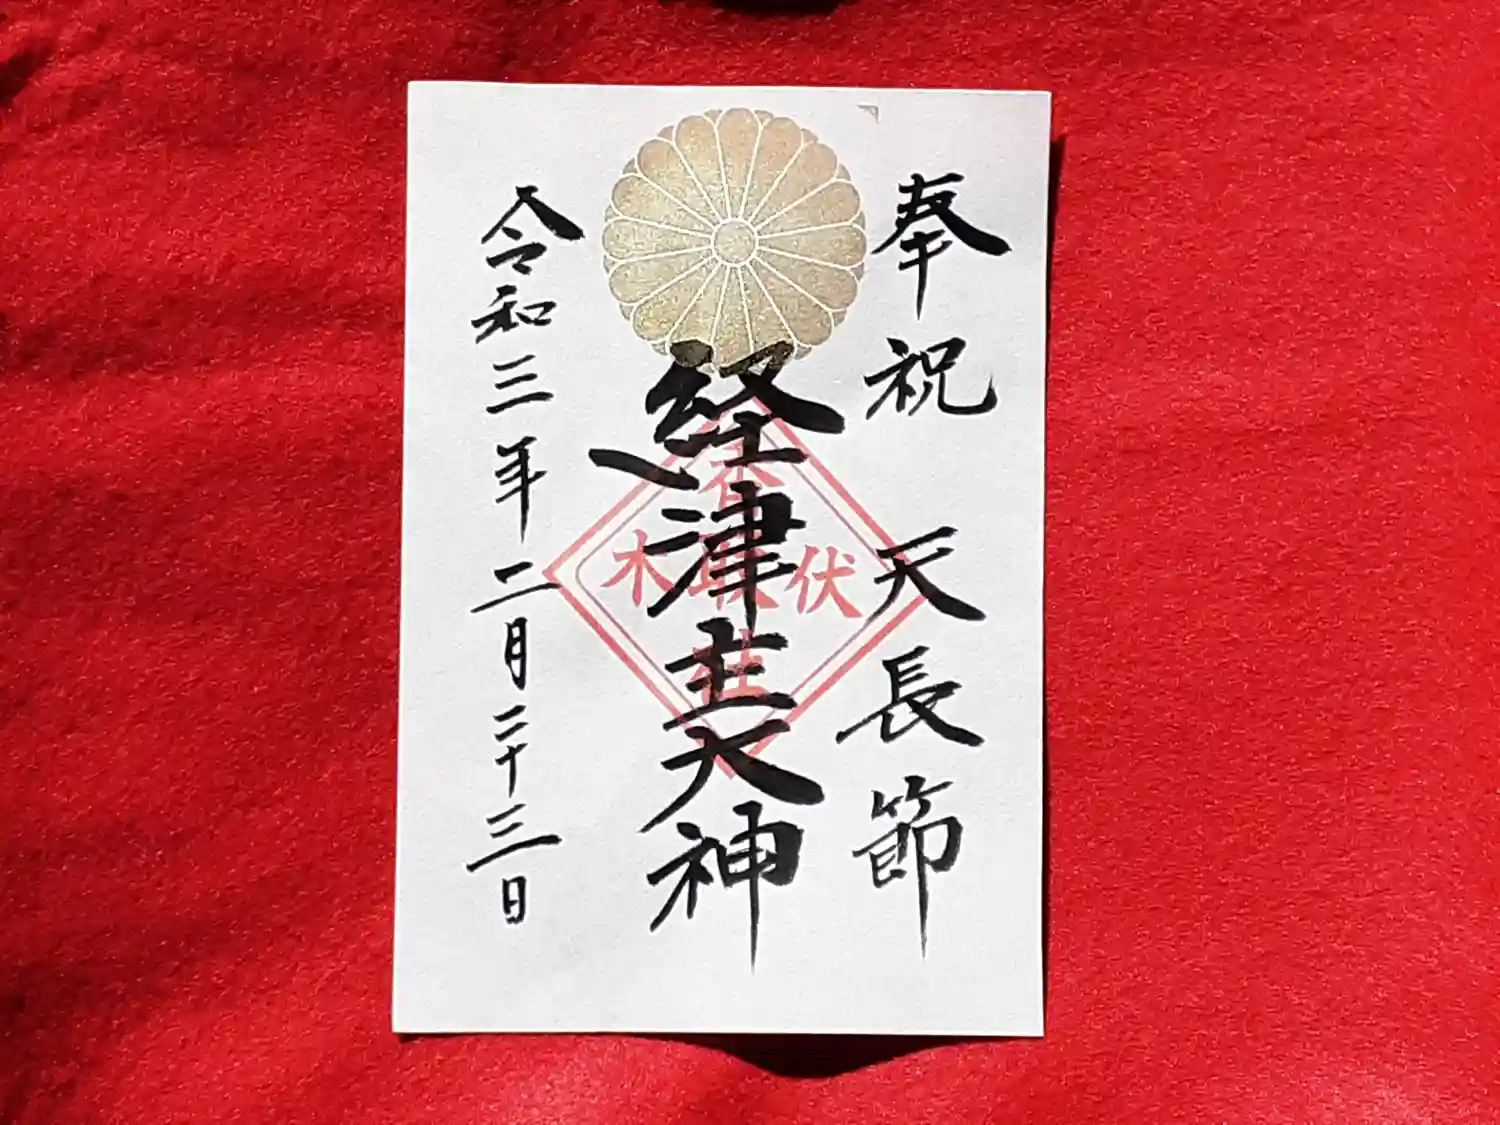 奉祝 天長節
経津主大神
令和三年二月二十三日
伏
木